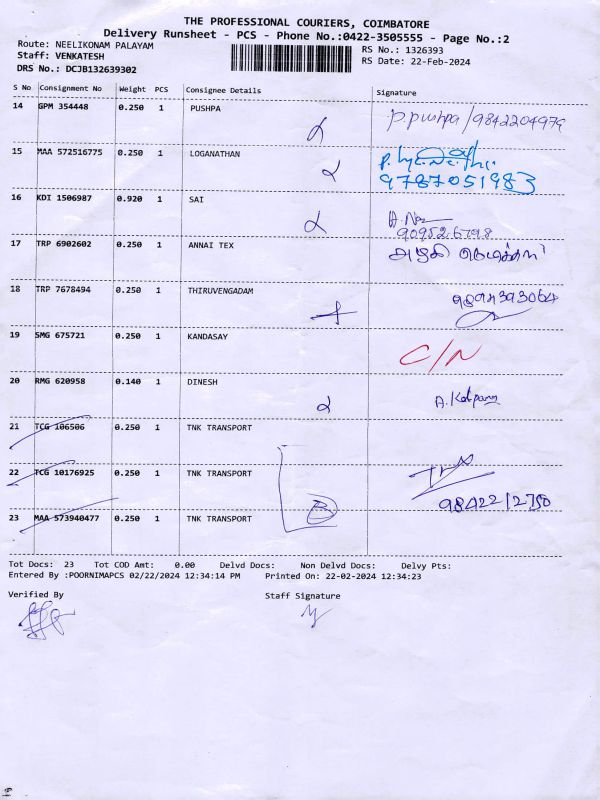 THE PROFESSIONAL COURIERS, COIMBATORE
Delivery Runsheet - PCS - Phone No.:0422-3505555 - Page No.:2
Route: NEELIKONAM PALAYAM
Staff: VENKATESH
DRS No.: DCJB132639302
RS No.: 1326393
RS Date: 22-Feb-2024
S No Consignment No Weight PCS Consignee Details Signature
14 GPM 354448 0.250 1 PUSHPA P.pushpa/9842204979
15 MAA 572516775 0.250 1 LOGANATHAN
9787051983
16 KDI 1506987 0.920 1 SAI
909526798
17 TRP 6902602 0.250 1 ANNAI TEX
18 TRP 7678494 0.250 1 THIRUVENGADAM
9894393064
19 SMG 675721 0.250 1 KANDASAY C/N
20 RMG 620958 0.140 1 DINESH A. Kalpana
21 TCG 106506 0.250 1 TNK TRANSPORT
22 TCG 10176925 0.250 1 TNK TRANSPORT
9842212750
23 MAA 573940477 0.250 1 TNK TRANSPORT B
Tot Docs: 23 Tot COD Amt: 0.00 Delvd Docs: Non Delvd Docs: Delvy Pts:
Entered By :POORNIMAPCS 02/22/2024 12:34:14 PM Printed On: 22-02-2024 12:34:23
Verified By Staff Signature